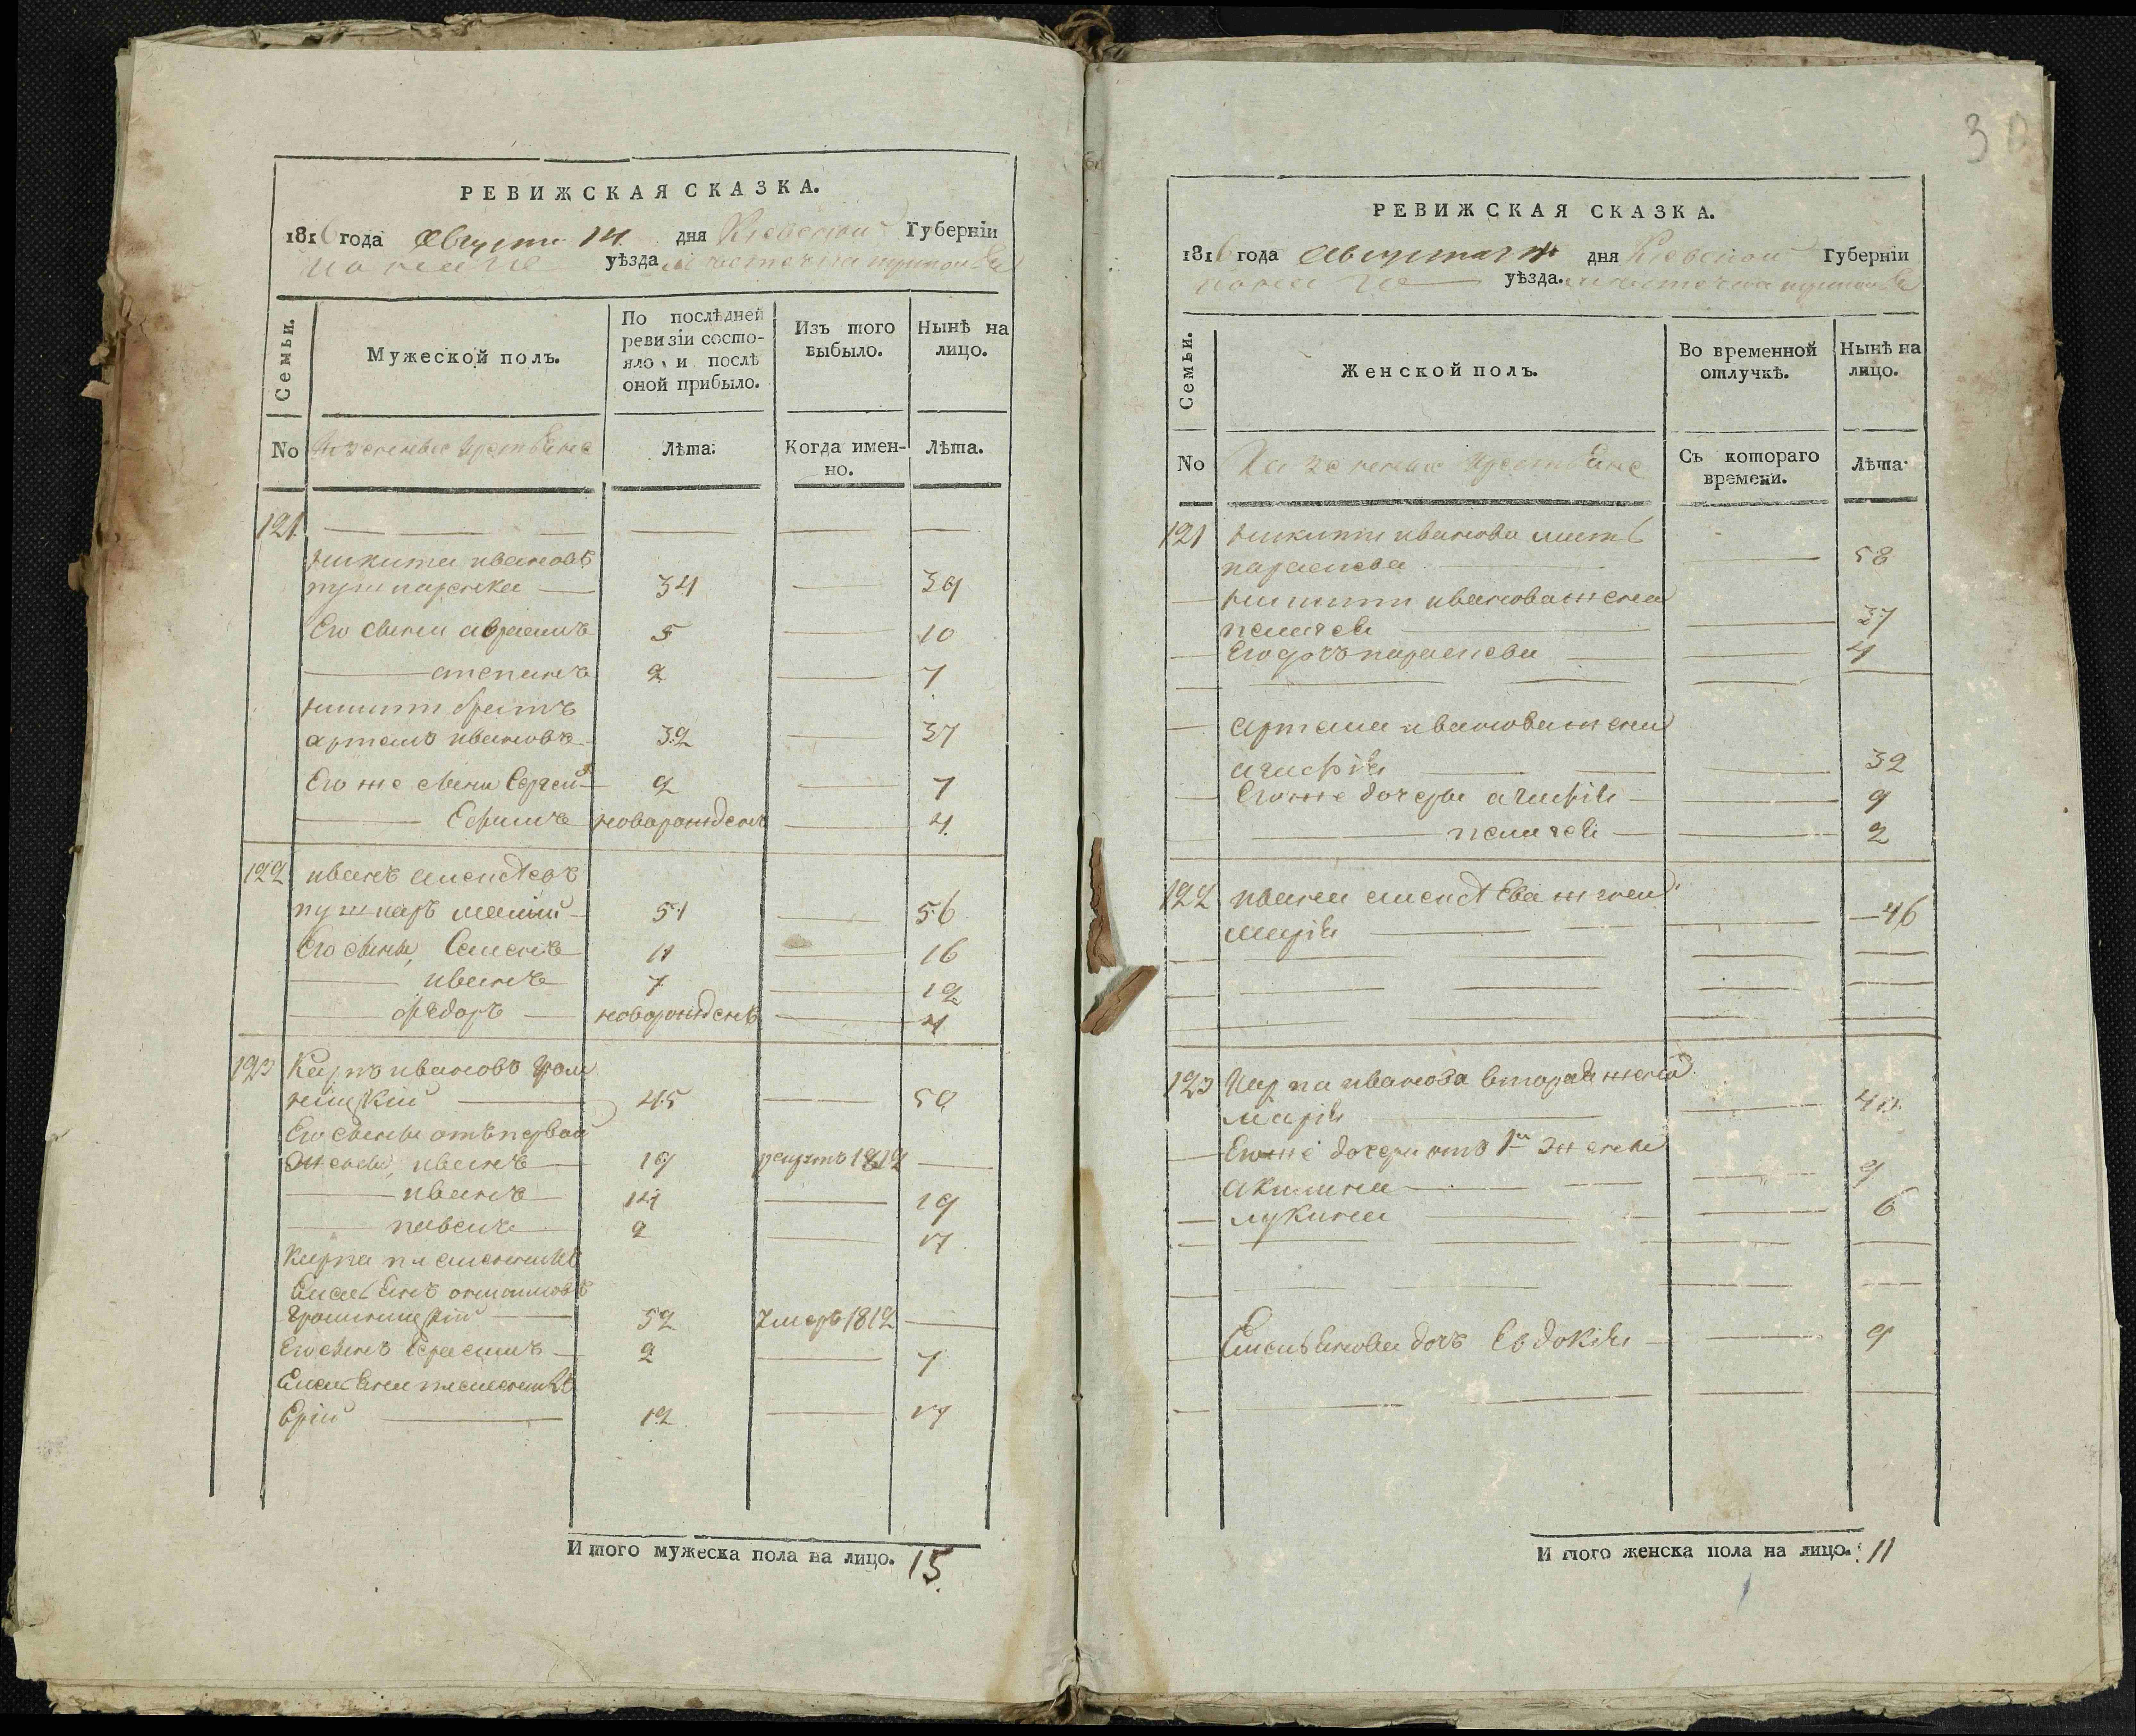 РЕВИЖСКАЯ СКАЗКА.
1816 года Августа 14 дня Киевской Губерніи
уѣзда местечка
Семьи.
Мужеской полъ.
По послѣдней ревизіи состояло, и послѣ оной прибыло.
Изъ того выбыло.
Нынѣ на лицо.
No
Лѣта:
Когда именно.
Лѣта.
121
Никита ивановъ
пушкаренка 34 39
Его сыны авраамъ 5 10
степанъ 2 7
никиты братъ
артемъ ивановъ 32 37
Его же сыны Сергей 2 7
Ефимъ новорожденъ 4
122 иванъ алексѣевъ
пушкарь 51 56
Его сыны, Семенъ 11 16
иванъ 7 12
фѣдоръ новорожденъ 4
123 Карпъ ивановъ
45 50
Его сыны отъ первой
жены, иванъ 19 рекрутъ 1812
иванъ 14 19
павелъ 2 7
Карпа племянникъ
32 умеръ 1812
Его сынъ Герасимъ 2 7
племянникъ
Юрій 12 17
Итого мужеска пола на лицо. 15.
30
РЕВИЖСКАЯ СКАЗКА.
1816 года августа 14 дня Киевской Губерніи
уѣзда. местечка
Семьи.
Женской полъ.
Во временной отлучкѣ.
Нынѣ на лицо.
No
Съ котораго времени.
Лѣта.
121 Никиты иванова мать
параскева 58
никиты иванова жена
пелагея 37
Его дочь параскева 4
артема иванова жена
агафія 32
Его же дочеры агафія 9
пелагея 2
122 ивана алексѣева жена
марія 46
123 Карпа иванова вторая жена
марія 40
Его же дочери отъ 1й жены
акилина 9
лукина 6
дочь Евдокія 9
Итого женска пола на лицо. 11